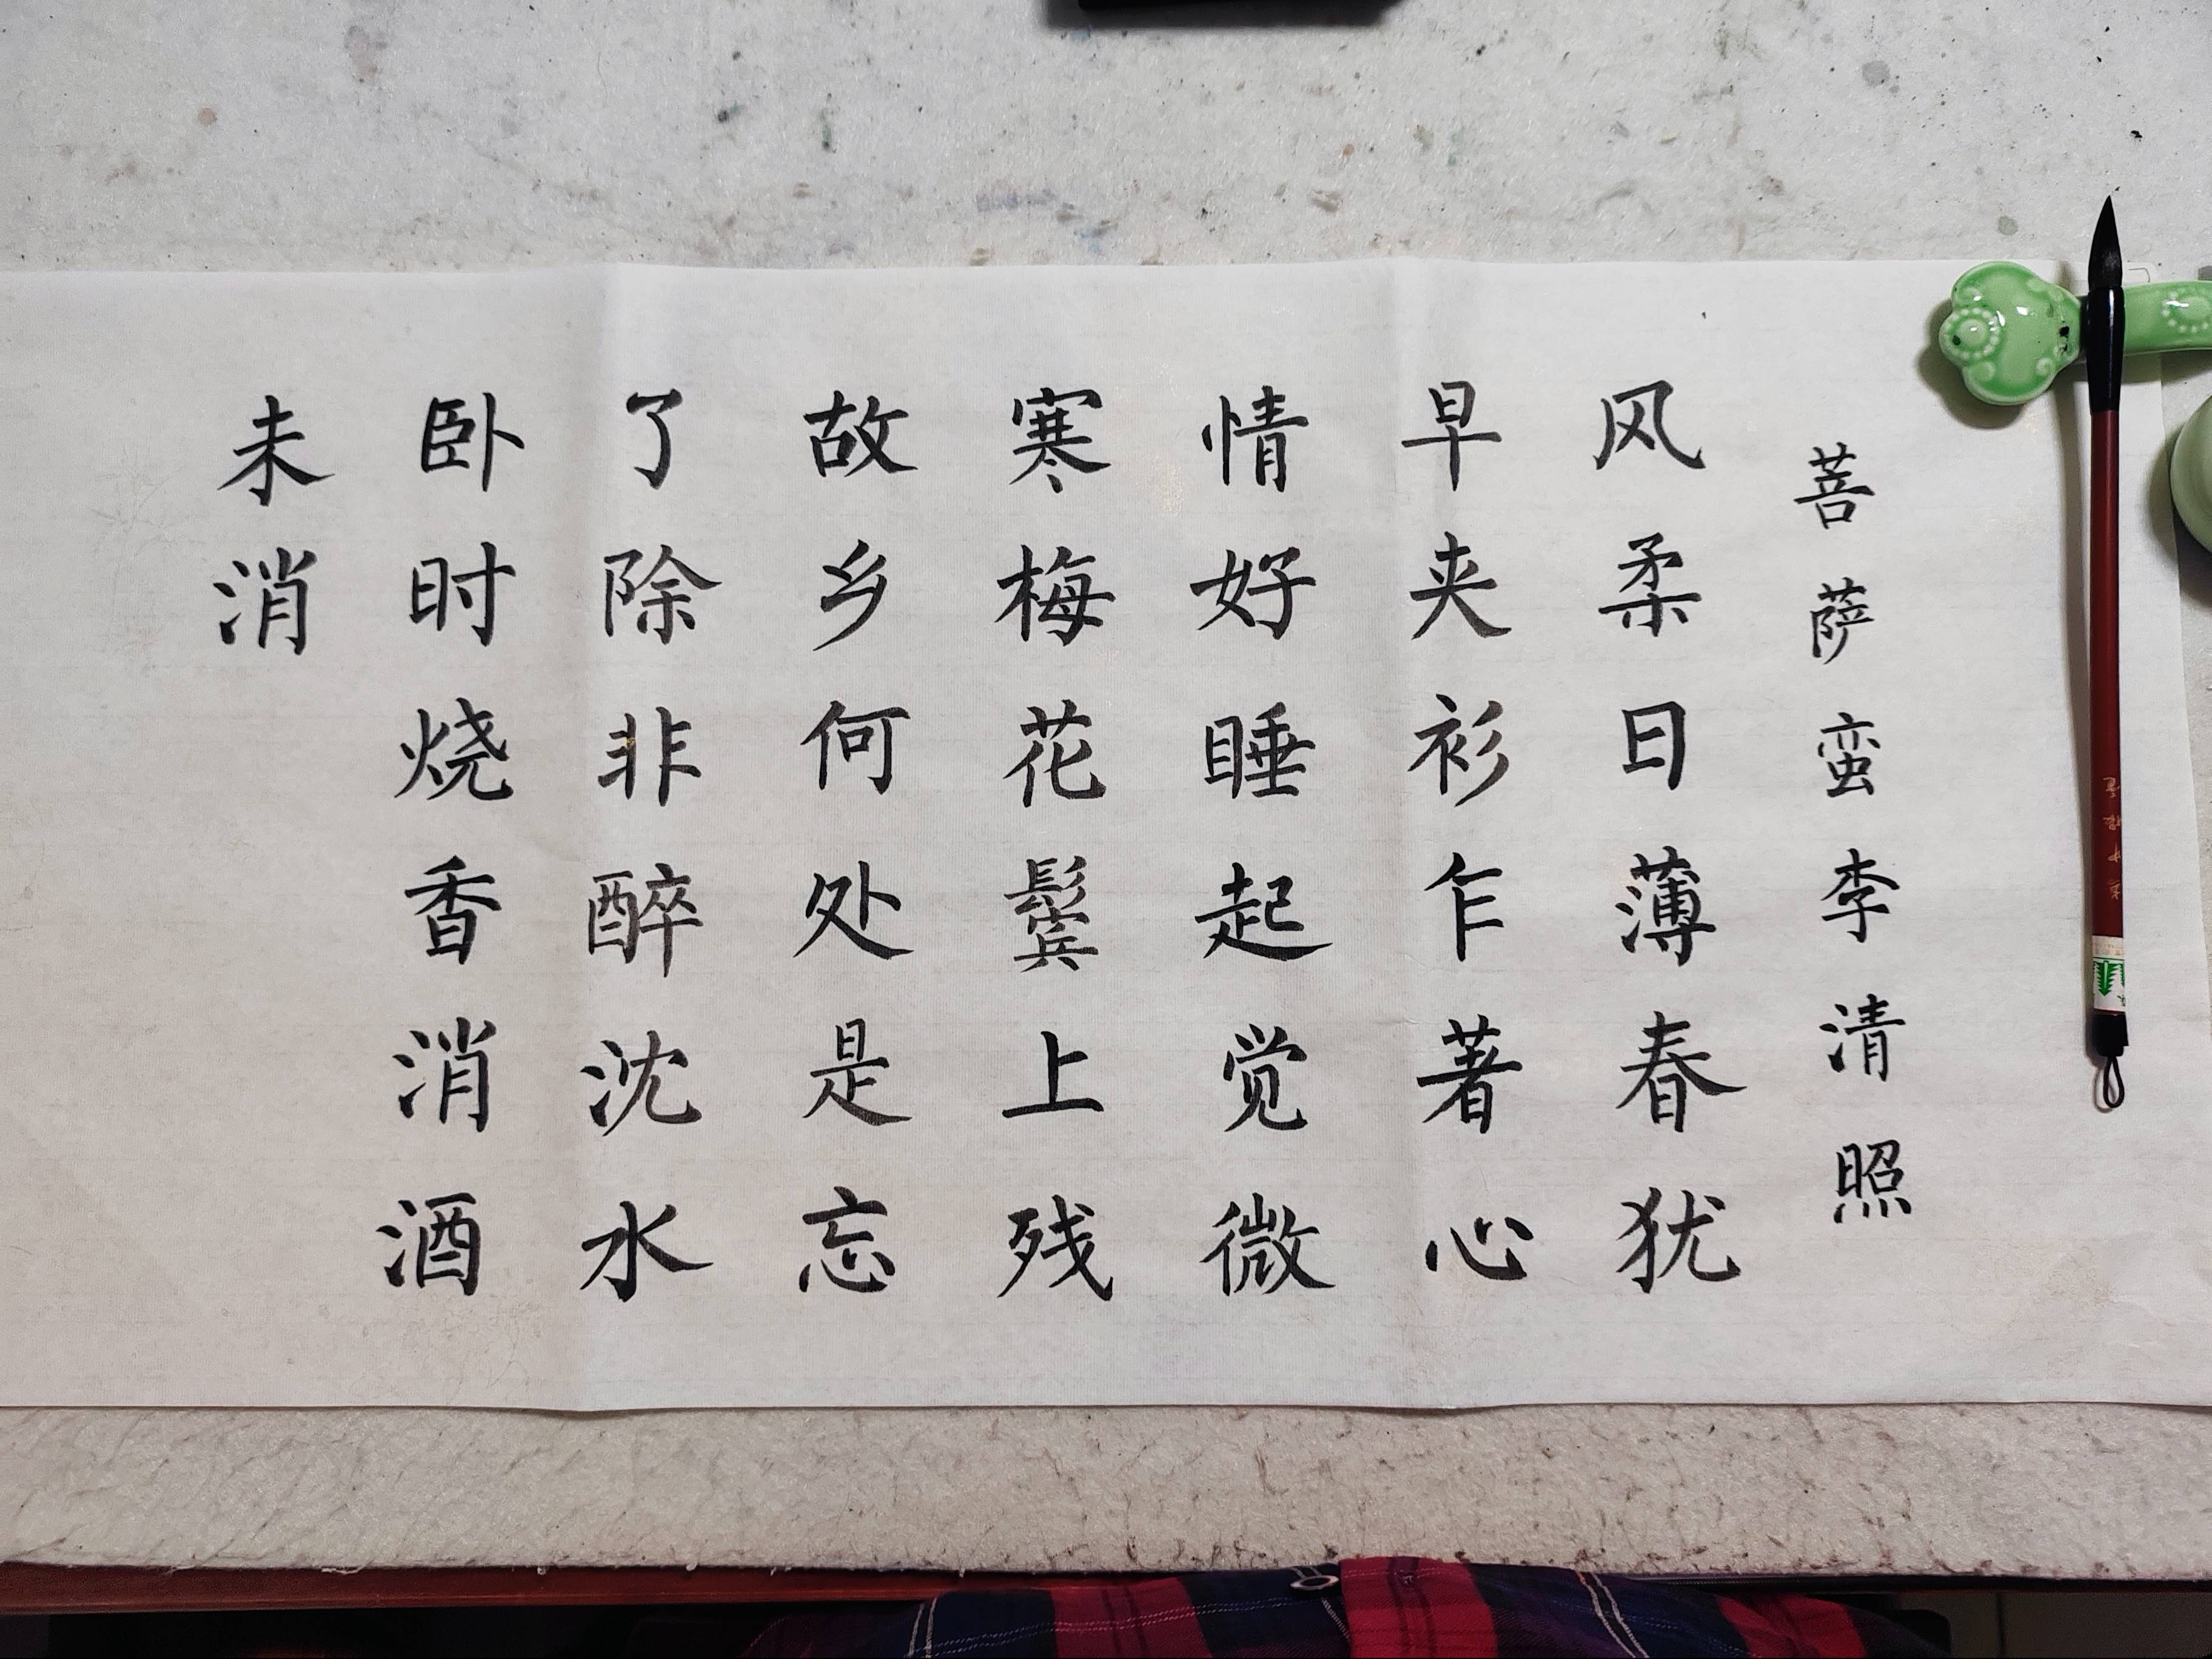 菩萨蛮李清照
风柔日薄春犹
早夹衫乍著心
情好睡起觉微
寒梅花鬓上残
故乡何处是忘
了除非醉沈水
卧时烧香消酒
未消